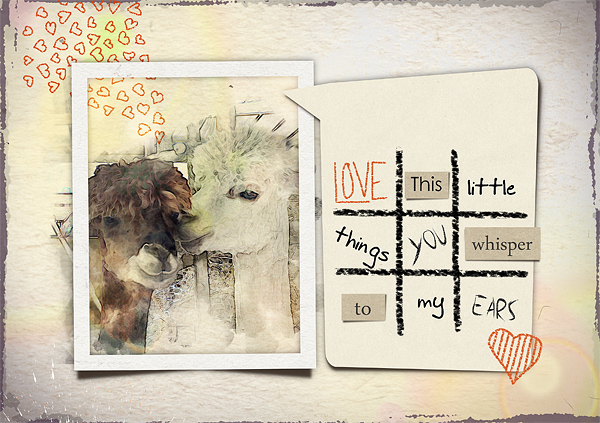 LOVE This little
things YOU whisper
to my EARS